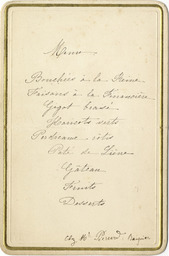 Menu
Bouchées à la Reine
Faisans à la Financière
Gigot braisé
Haricots verts
Perdreaux rôtis
Pâté de Lièvre
Gâteau
Fruits
Desserts
Chez Mr